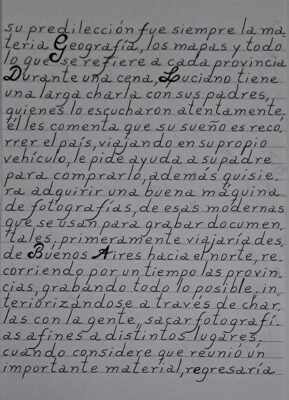 su predilección fue siempre la ma
teria Geografía, los mapas y todo
lo que se refiere a cada provincia
Durante una cena, Luciano tiene
una larga charla con sus padres,
quienes lo escucharon atentamente,
él les comenta que su sueño es reco
rrer el país, viajando en su propio
vehículo, le pide ayuda a su padre
para comprarlo, además quisie
ra adquirir una buena máquina
de fotografías, de esas modernas
que se usan para grabar documen
tales, primeramente viajaría des
de Buenos Aires hacia el norte, re
corriendo por un tiempo las provin
cias, grabando todo lo posible, in
teriorizándose a través de char
las con la gente, sacar fotografí
as afines a distintos lugares,
cuando considere que reunió un
importante material, regresaría